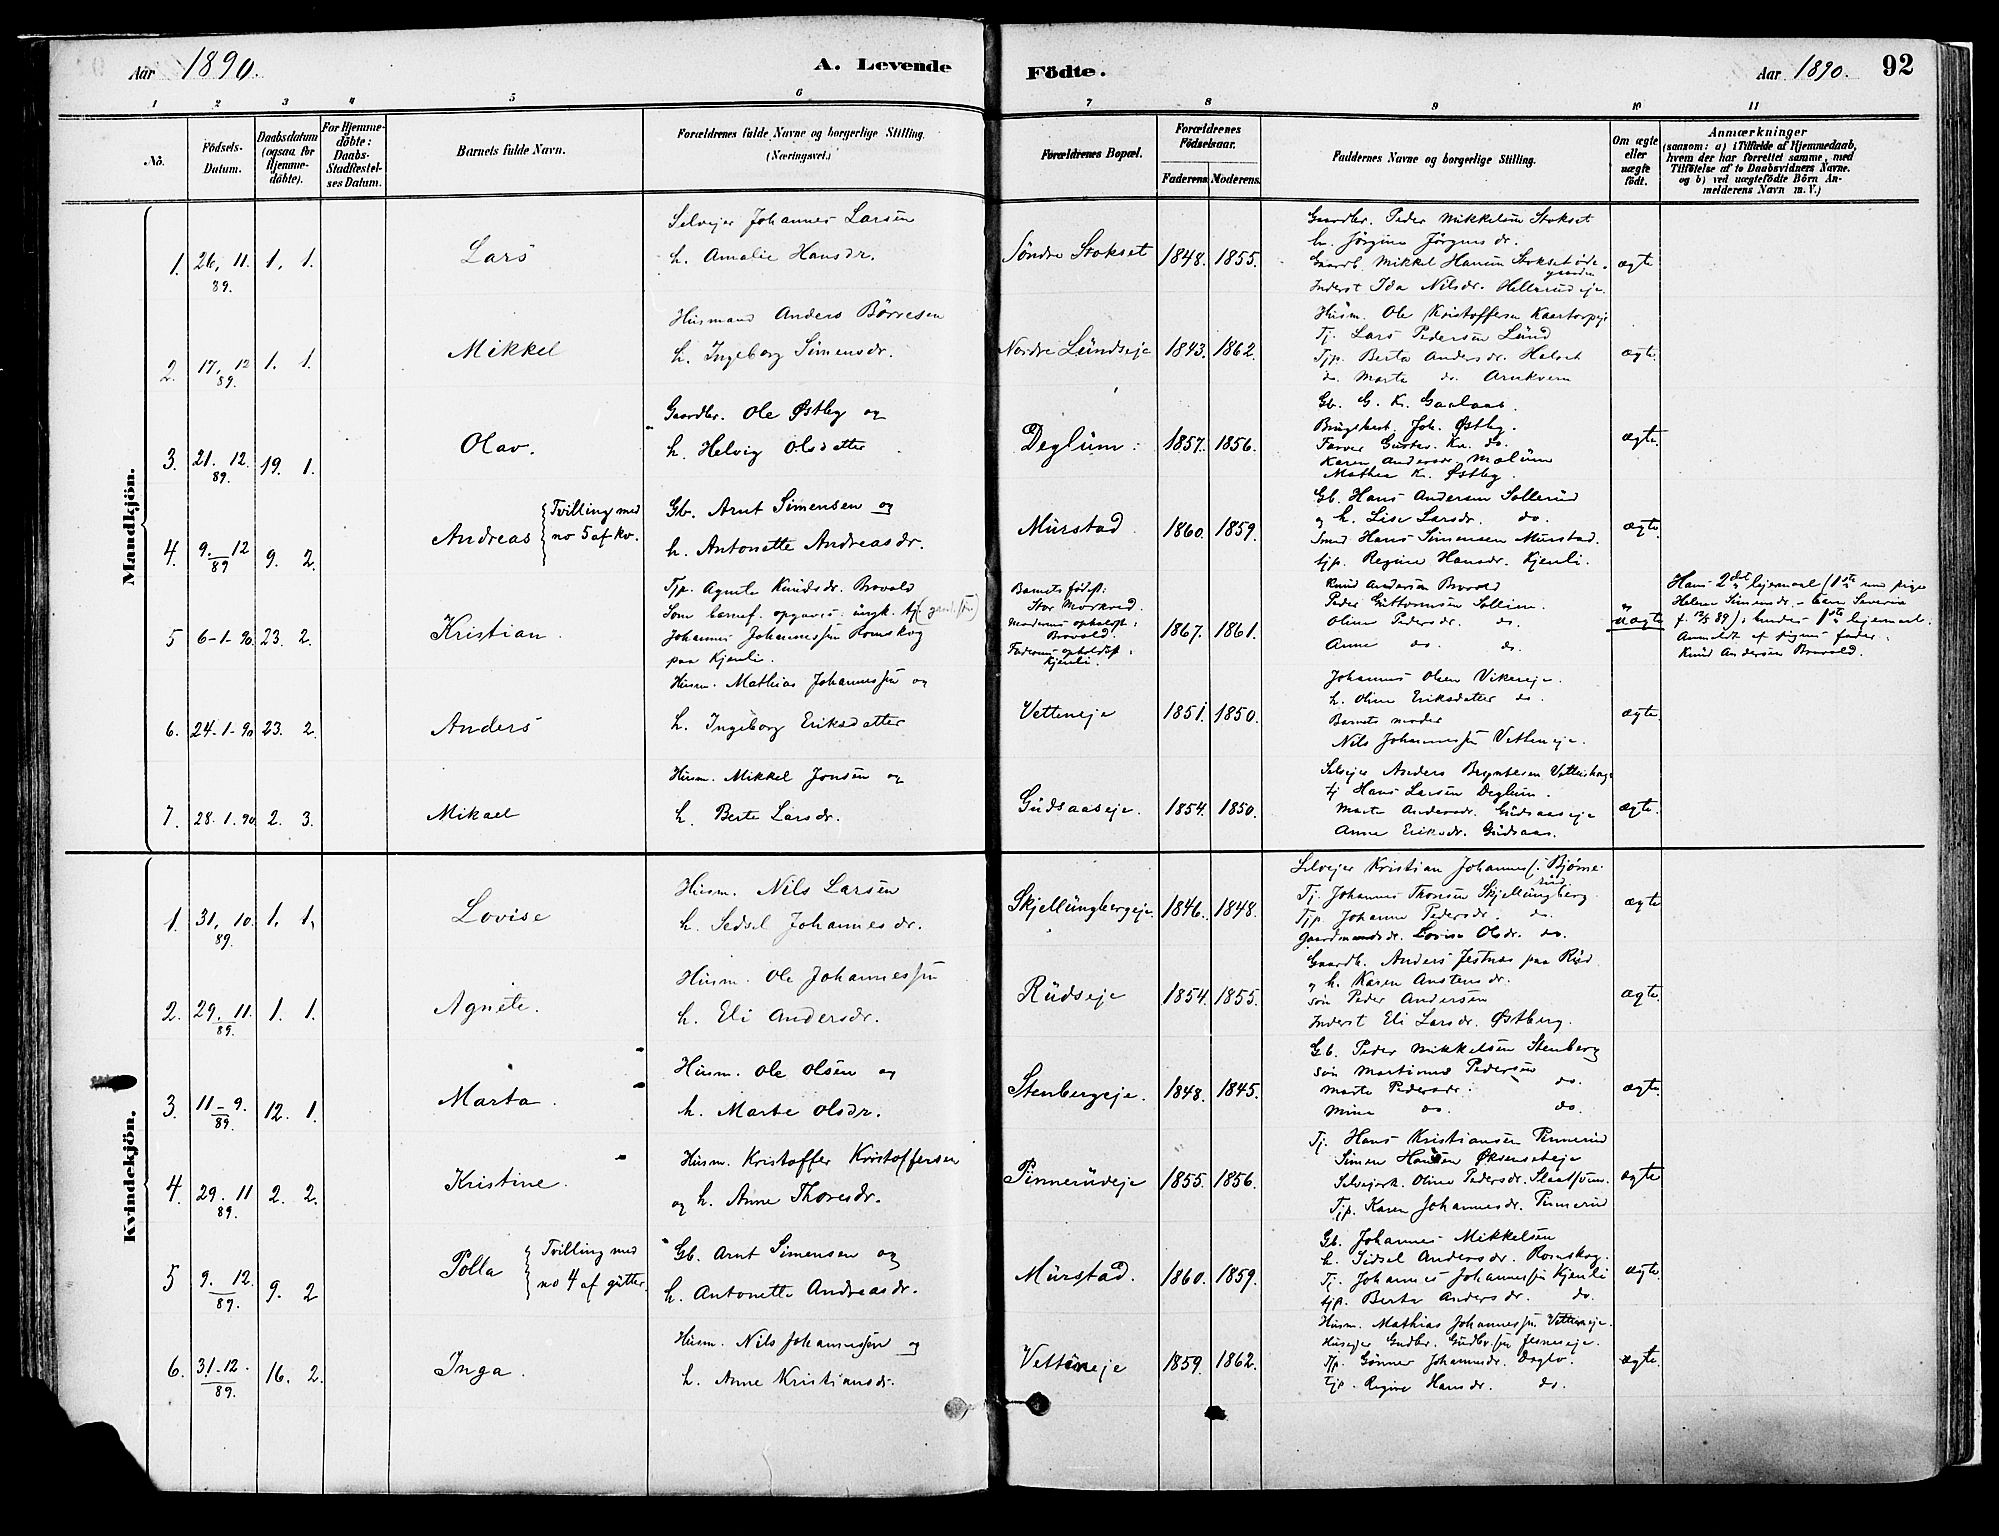 Aar 1890. A. Levende Födte. Aar 1890. 92
1 2 3 4 5 6 7 8 9 10 11
No. Födsels-Datum. Daabsdatum (ogsaa for Hjemme-döbte). For Hjemme-döbte: Daabs-Stadfæstel-ses Datum. Barnets fulde Navn. Forældrenes fulde Navne og borgerlige Stilling. (Næringsvei.) Forældrenes Bopæl. Forældrenes Födselsaar. Faderens Moderens. Faddernes Navne og borgerlige Stilling. Om ægte eller uægte födt. Anmærkninger (saasom: a) i Tilfælde af Hjemmedaab, hvem der har forrettet samme, med Tilföielse af to Daabsvidners Navne. og b) ved uægtefödte Börn An-melderens Navn m. V.)
Mandkjön.
Selvejer Johannes Larsen
Gaardbr. Peder Mikkelsen Stokset
h. Jörgine Jörgensdr.
1. 26. 11. 89. 1. 1. Lars h. Amalie Hansdr. Söndre Stokset 1848. 1855. Gaardb. Mikkel Hansen Stokset öde-gaarden ægte
Inderst Ida Nilsdr. Hellerudeje.
Husmand Anders Börresen
Husm. Ole Kristoffersen Kaartorpeje
Tj. Lars Pedersen Lund
2. 17. 12 89. 1. 1. Mikkel h. Ingeborg Simensdr. Nordre Lundseje 1843. 1862. Tjp. Berte Andersdr. Helset ægte.
do. Marte do. Arnkvern
Gaardbr. Ole Østby og
Gb. G. K. Gaalaas.
Brugsbest. Joh. Østby.
3. 21. 12. 89. 19. 1. Olav. h. Helvig Olsdatter Deglum: 1857. 1856. Farver Gustav. Kr. do. ægte.
Karen Andersdr. Mælum
Mathea K. Østby.
Gb. Arnt Simensen og
Gb. Hans Andersen Sollerud
og h. Lise Larsdr. do.
4. 9. 12 89 9. 2. Andreas { Tvilling med no 5 af kv. h. Antonette Andreasdr. Murstad 1860. 1859. Smed Hans Simensen Murstad. ægte.
tjp. Regine Hansdr. Kjenli.
Tjp. Agnete Knudsdr. Brovold
Som barnef. opgaves: ungk. tj.
5 6-1-90. 23. 2. Kristian. Johannes Johannessen Romskog
paa Kjenli.
Barnets födest: Stor Morkved
Moderens opholdst: Brovold.
Faderens opholdsst: Kjenli.
1867. 1861.
Knud Andersen Brovold
Peder Guttormsen Sollien
Oline Pedersdr. do.
Anne do. do.
uægte
Hans 2det lejermaal (1ste med pige
Helene Simensdr. – barn Severin
f. 12/5 89); hendes 1ste lejermaal.
Anmeldt af pigens fader:
Knud Andersen Brovold.
Husm. Mathias Johannessen og
Johannes Olsen Vikereje.
h. Oline Eriksdatter do.
6. 24-1-90 23. 2. Anders h. Ingeborg Eriksdatter Vetteneje 1851. 1850. Barnets moder ægte.
Nils Johannessen Vetteneje.
Husm. Mikkel Jonsen og
Selvejer Anders Berntesen
tj Hans Larsen Deglum.
7. 28. 1. 90. 2. 3. Mikael h. Berte Larsdr. Gudsaaseje. 1854. 1850. Marte Andersdr. Gudsaaseje ægte.
Anne Eriksdr. Gudsaas.
Kvindekjön.
Husm. Nils Larsen
Selvejer Kristian Johanness. Bjørne-rud
Tj. Johannes Thorsen Skjellungberg
1. 31. 10. 89. 1. 1. Lovise h. Sedsel Johannesdr. Skjellungbergeje. 1846. 1848. Tjp. Johanne Pedersdr. do. ægte
Gaardmandsdr. Lovise Olsdr. do.
Husm. Ole Johannessen
Gaardb. Anders Jestnæs paa Rud
og h. Karen Anstensdr.
2. 29. 11. 89. 1. 1. Agnete. h. Eli Andersdr. Rudseje 1854. 1855. sön Peder Andersen ægte.
Inderst Eli Larsdr. Østberg.
Husm. Ole Olsen og
Gb. Peder Mikkelsen Stenberg
sön Martinus Pedersen do.
3. 11-9. 89. 12. 1. Marta. h. Marte Olsdr. Stenbergeje. 1848. 1845. Marte Pedersdr: ægte.
Mina do. do.
Husm. Kristoffer Kristoffersen
Tj. Hans Kristiansen Pinnerud
Simen Hansen Øksenseteje
4. 29. 11 89. 2. 2. Kristine. og h. Anne Thoresdr. Pinnerudeje 1855. 1856. Selvejerk. Oline Pedersdr. ægte
Tjp. Karen Johannesdr. Pinnerud
Gb. Arnt Simensen og
Gb. Johannes Mikkelsen
h. Sidsel Andersdr. Romskog.
5 9. 12. 89. 9. 2 Polla { Tvilling med no 4 af gutter. h. Antonette Andreasdr. Murstad. 1860. 1859. Tj. Johannes Johannessen Kjenli ægte.
tjp. Berte Andersdr. do.
Husm. Nils Johannessen og
Husm. Mathias Johannessen Vetteneje.
Husejer Gudbr. Gudbrsen Jesneseje.
6. 31-12. 89. 16. 2. Inga. h. Anne Kristiansdr. Vetteneje 1859. 1862. Tjp. Gunner Johannesdr. ægte.
tjp. Regine Hansdr. do.